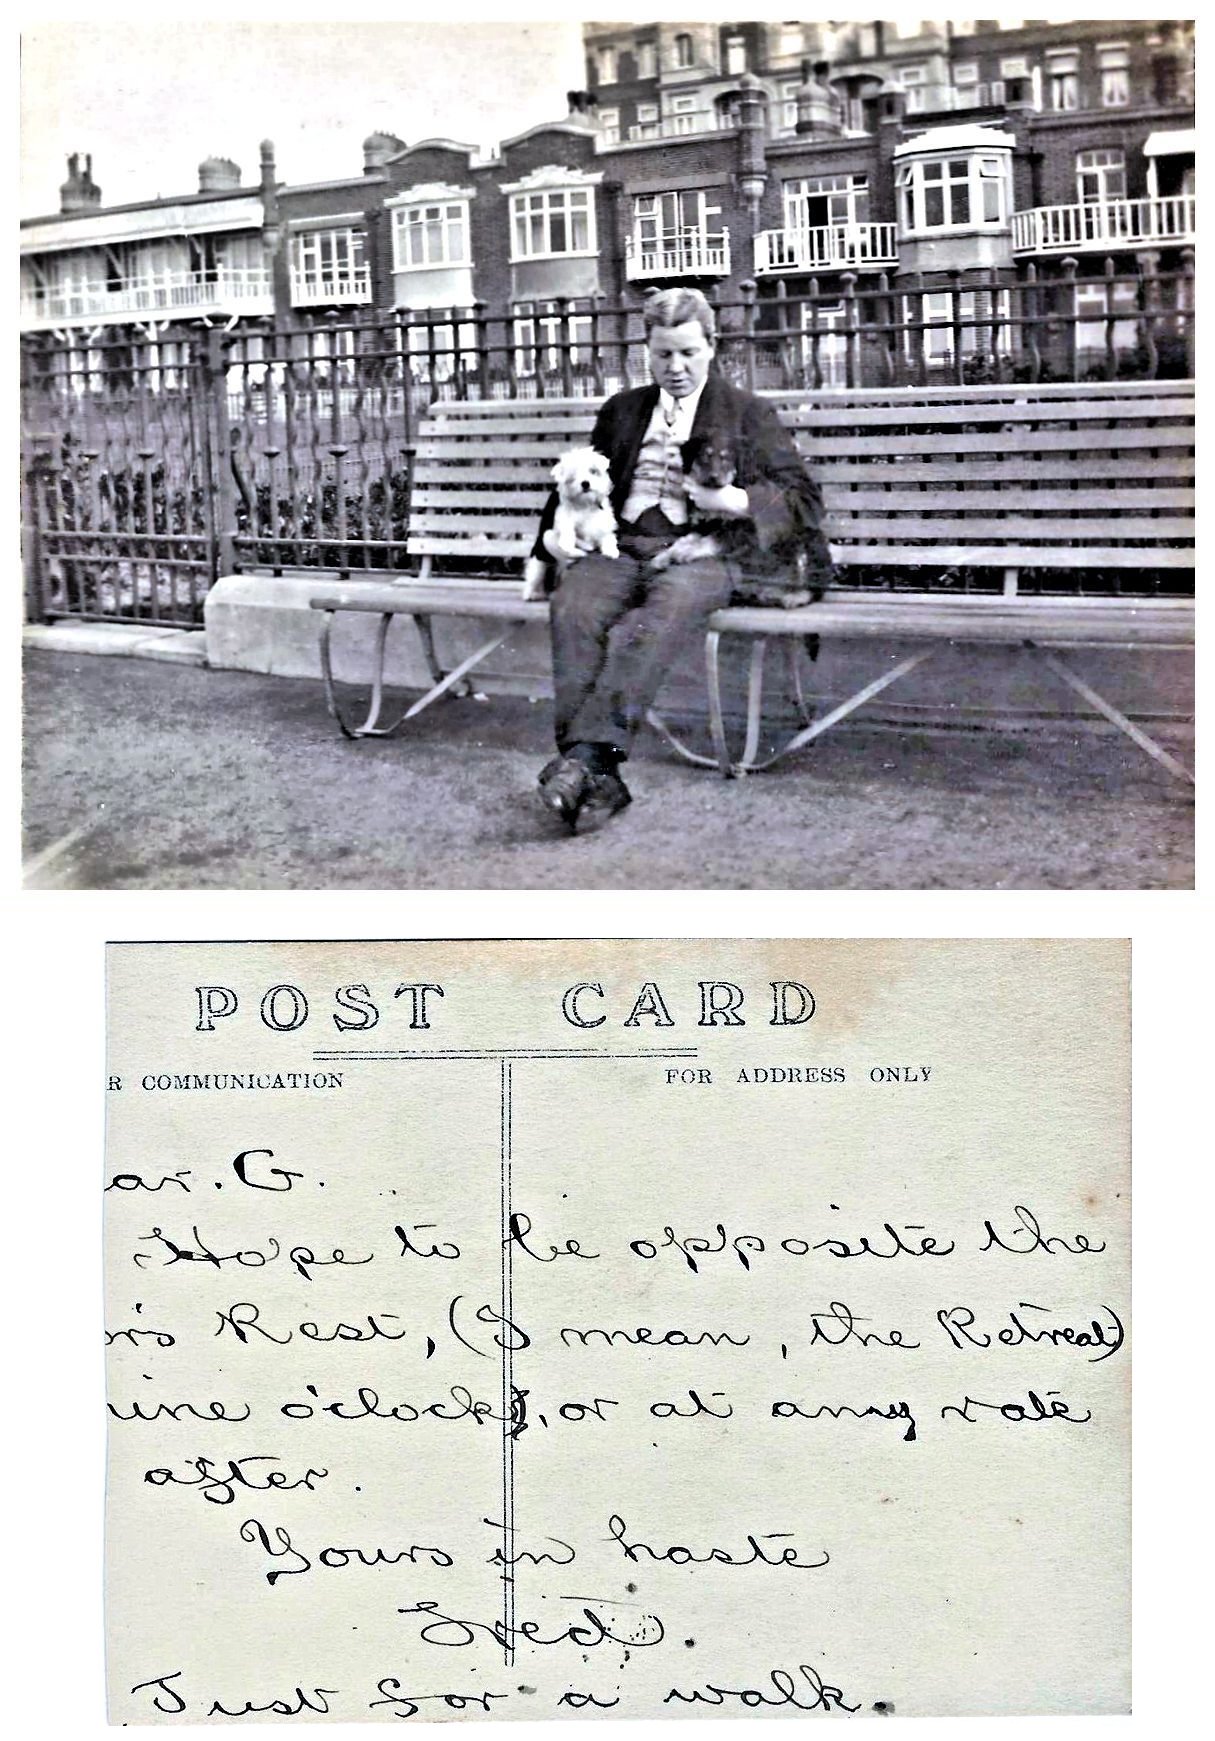 POST CARD
R COMMUNICATION
FOR ADDRESS ONLY
ar. G.
Hope to be opposite the
r's Rest, (I mean, the Retreat)
ine o'clock), or at any rate
after.
Yours in haste
Fred.
Just for a walk.